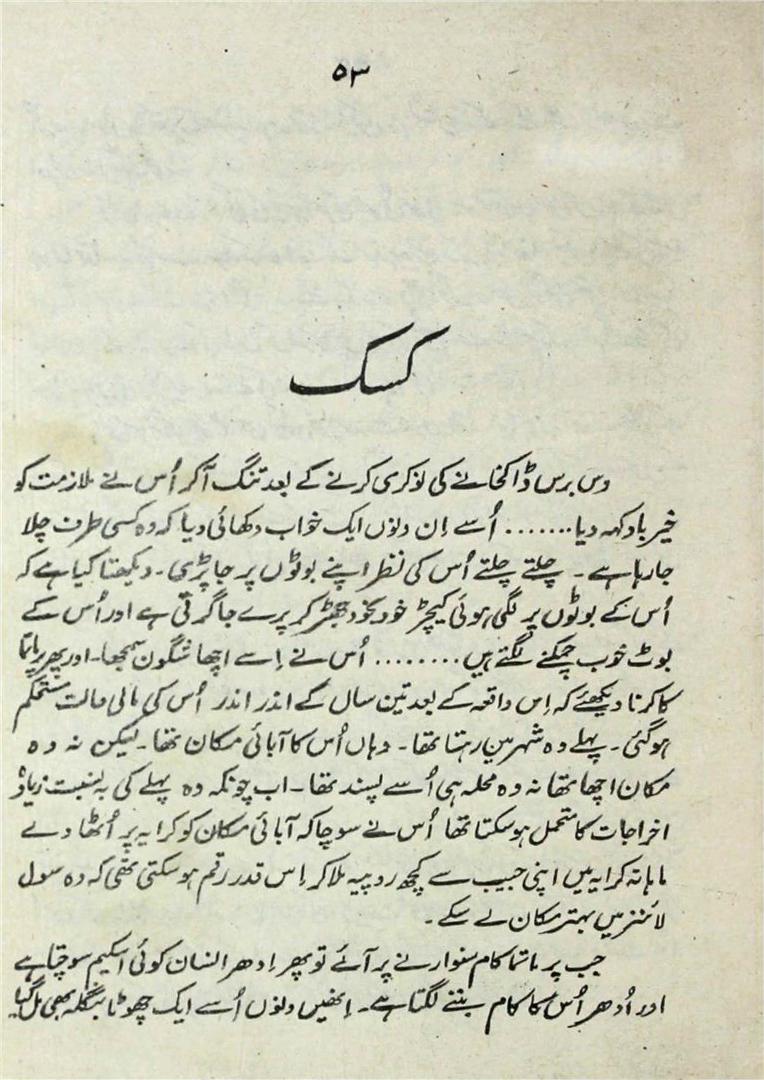 ۵۳
کسک
دس برس ڈاکخانے کی نوکری کرنے کے بعد تنگ آکر اُس نے ملازمت کو
خیر باد کہہ دیا....... اُسے اِن دنوں ایک خواب دکھائی دیا کہ وہ کسی طرف چلا
جا رہا ہے ۔ چلتے چلتے اُس کی نظر اپنے بوٹوں پر جا پڑی۔ دیکھتا کیا ہے کہ
اُس کے بوٹوں پر لگی ہوئی کیچڑ خود بخود جھڑ کر پرے جا گرتی ہے اور اُس کے
بوٹ خوب چمکنے لگتے ہیں........ اُس نے اِسے اچھا شگون سمجھا۔ اور پھر پرماتما
کا کرنا دیکھئے کہ اِس واقعہ کے بعد تین سال کے اندر اندر اُس کی مالی حالت مستحکم
ہوگئی۔ پہلے وہ شہر میں رہتا تھا۔ وہاں اُس کا آبائی مکان تھا۔ لیکن نہ وہ
مکان اچھا تھا نہ وہ محلہ ہی اُسے پسند تھا۔ اب چونکہ وہ پہلے کی بہ نسبت زیادہ
اخراجات کا متحمل ہو سکتا تھا اُس نے سوچا کہ آبائی مکان کو کرایہ پر اُٹھا دے
ماہانہ کرایہ میں اپنی جیب سے کچھ روپیہ ملا کر اِس قدر رقم ہو سکتی تھی کہ وہ سول
لائنز میں بہتر مکان لے سکے۔
جب پرماتما کام سنوارنے پر آئے تو پھر اِدھر انسان کوئی اسکیم سوچتا ہے
اور اُدھر اُس کا کام بننے لگتا ہے۔ انھیں دنوں اُسے ایک چھوٹا بنگلہ بھی مل گیا